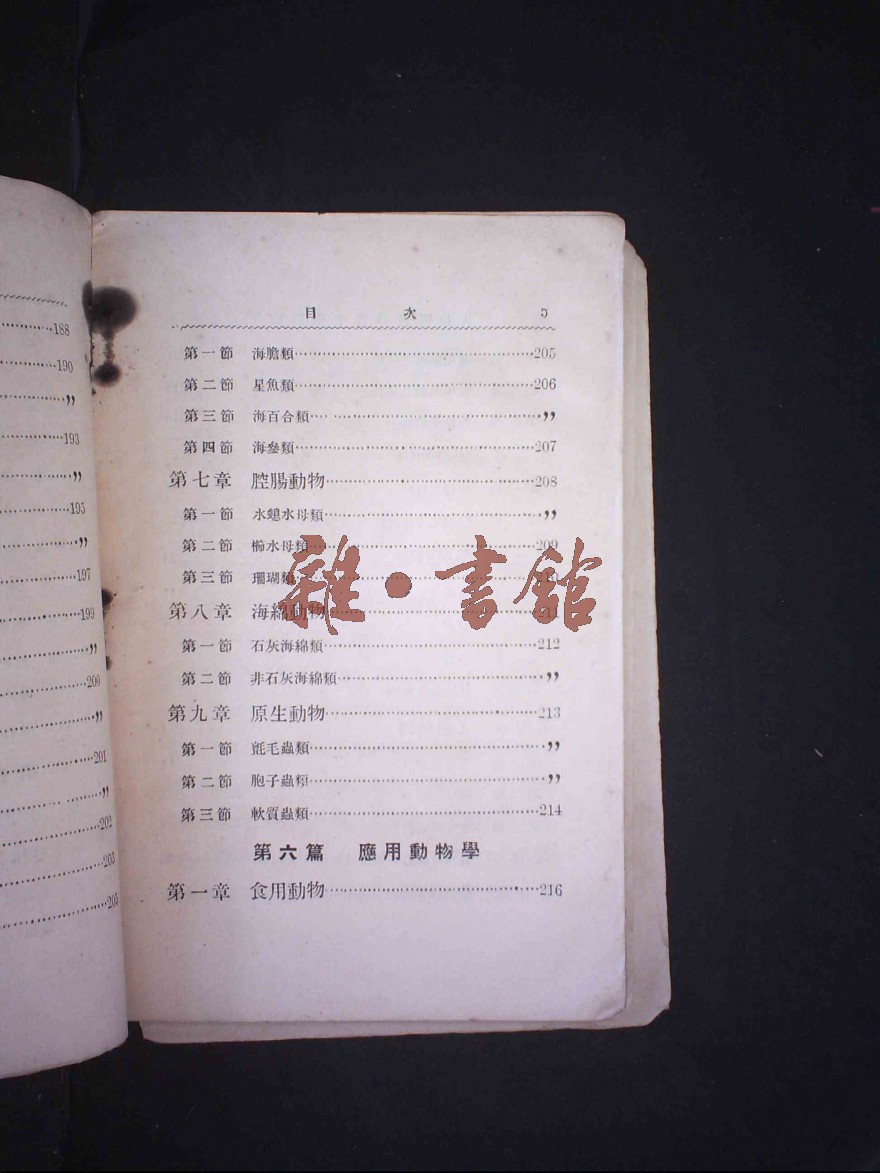 188
190
”
193
”
195
”
197
199
”
200
”
201
”
202
203
205
目 次 5
第一節 海膽類 205
第二節 星魚類 206
第三節 海百合類 ”
第四節 海參類 207
第七章 腔腸動物 208
第一節 水螅水母類 ”
第二節 櫛水母類 209
第三節 珊瑚類
第八章 海綿動物
第一節 石灰海綿類 212
第二節 非石灰海綿類 ”
第九章 原生動物 213
第一節 氈毛蟲類 ”
第二節 胞子蟲類 ”
第三節 軟質蟲類 214
第六篇 應用動物學
第一章 食用動物 216
雜·書館